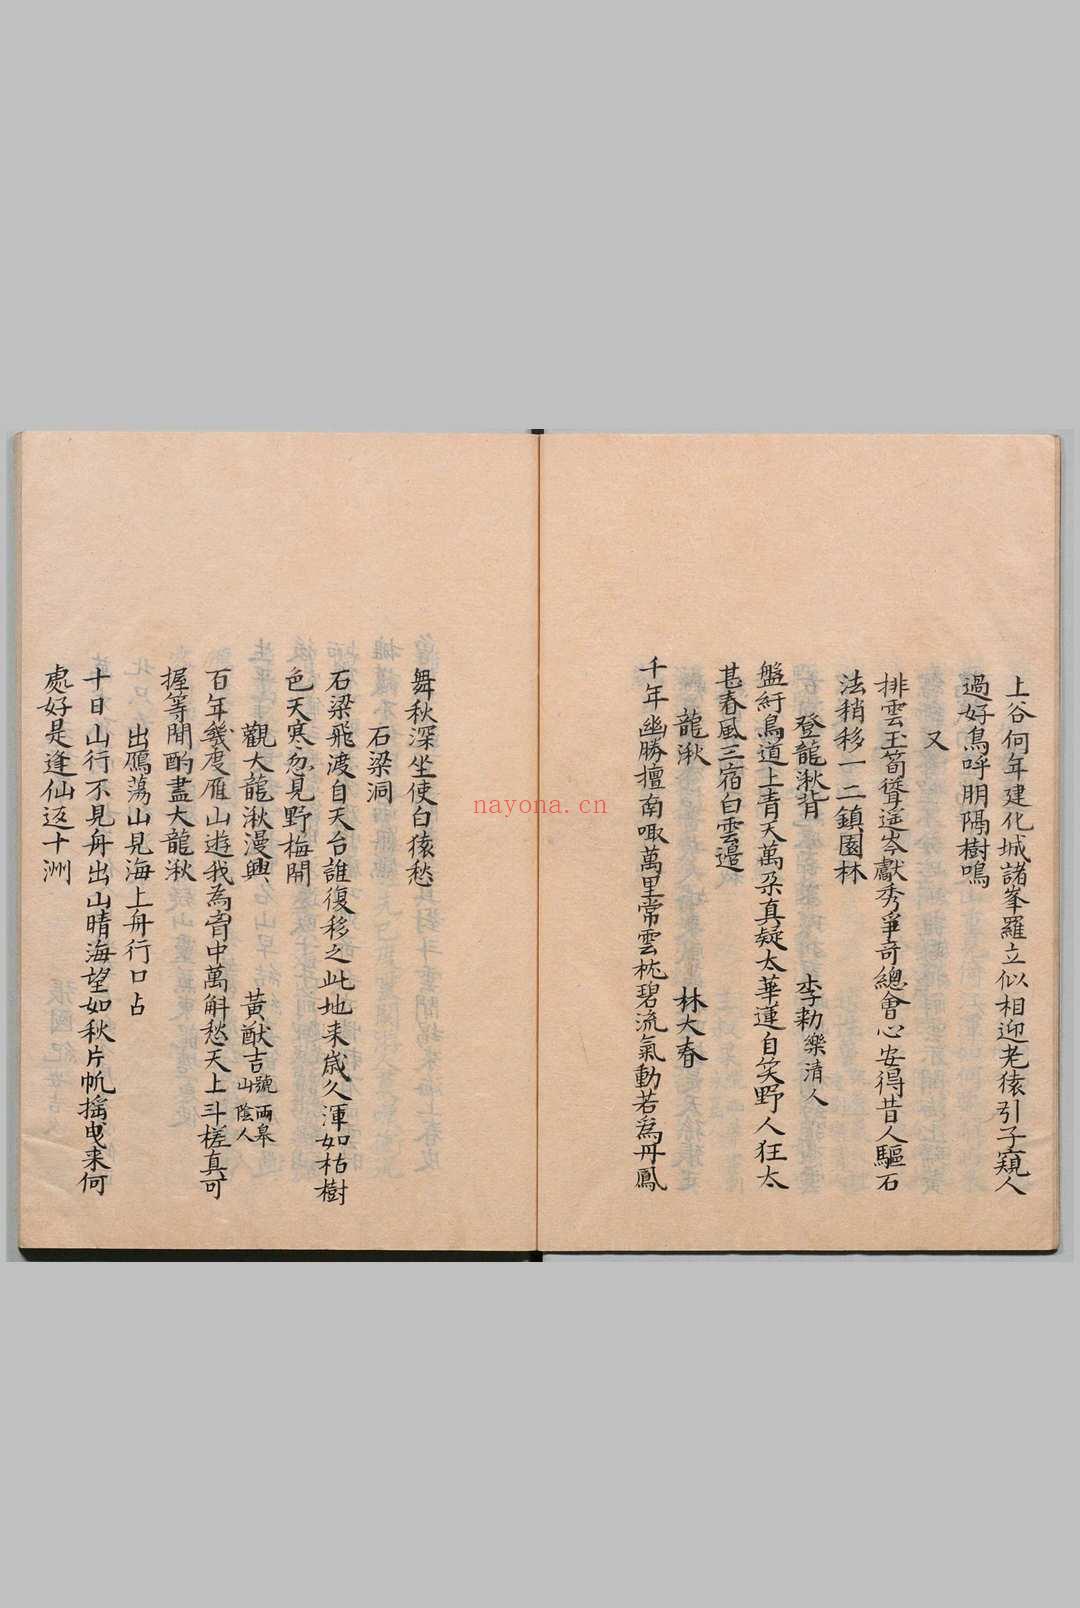 上谷何年建化城諸峯羅立似相迎老猿引子窺人
過好鳥呼朋隔樹鳴
又
排雲玉筍聳遥岑獻秀爭奇總會心安得昔人驅石
法稍移一二鎮園林
登龍湫背 李勣樂清人
盤紆鳥道上青天萬朶真疑太華蓮自笑野人狂太
甚春風三宿白雲邉
龍湫 林大春
千年幽勝擅南陬萬里常雲枕碧流氣動若為丹鳳
舞秋深坐使白猿愁
石梁洞
石梁飛渡自天台誰復移之此地来歲久渾如枯樹
色天寒忽見野梅開
觀大龍湫漫興 黃猷吉號兩皋山陰人
百年幾度雁山遊我為胷中萬斛愁天上斗槎真可
握等閒酌盡大龍湫
出鴈蕩山見海上舟行口占
十日山行不見舟出山晴海望如秋片帆搖曳来何
處好是逢仙返十洲
nayona.cn